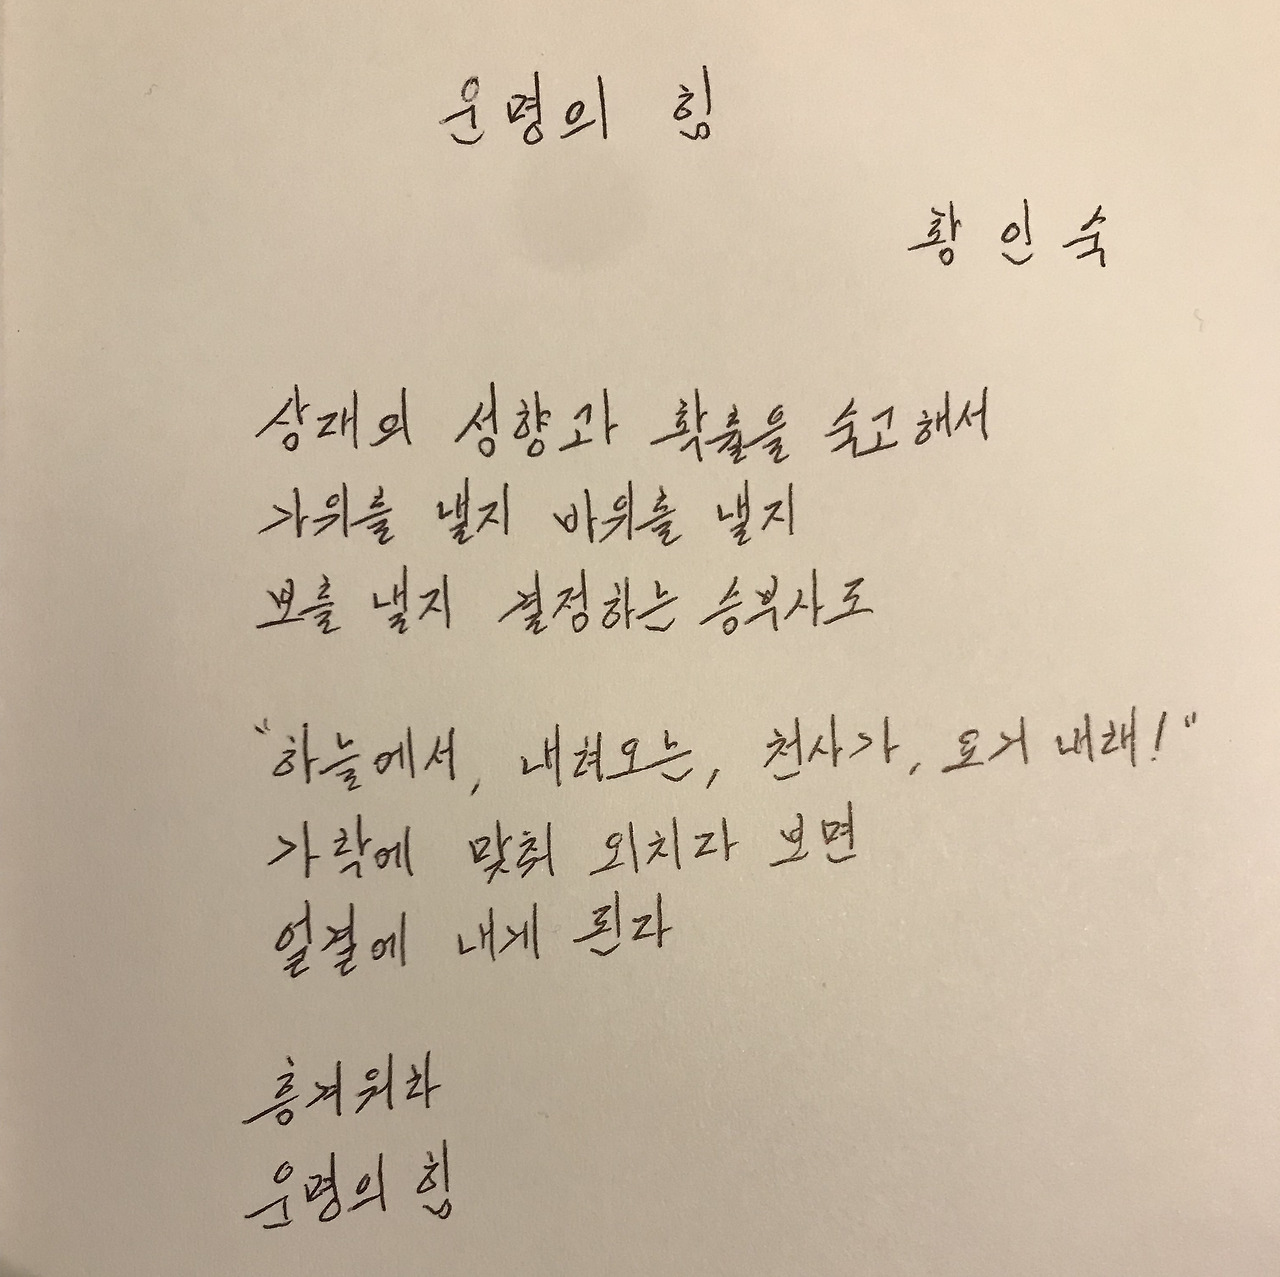 운명의 힘
황인숙
상대의 성향과 확률을 숙고해서
가위를 낼지 바위를 낼지
보를 낼지 결정하는 승부사도
"하늘에서, 내려오는, 천사가, 요거 내래!"
가락에 맞춰 외치다 보면
얼결에 내게 된다
흥겨워라
운명의 힘